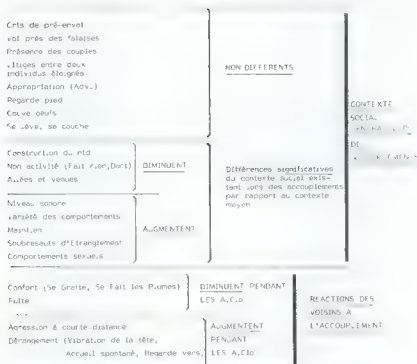 Cris de pré-envol
vol près des falaises
Présence des couples
entre deux
individus éloignés
Appropriation (Adv.)
Regarde pied
Couve oeufs
Se lève, se couche
NON DIFFERENTS
Construction du nid
Non activité (Fait rien, Dort)
Allées et venues
DIMINUENT
Niveau sonore
variété des comportements
Maintien
Soubresauts d'Etranglement
Comportements sexuels
AUGMENTENT
Différences significatives
du contexte social exis-
tant lors des accouplements
par rapport au contexte
moyen
CONTEXTE
SOCIAL
DE
Confort (Se Gratte, Se Fait les Plumes)
Fuite
DIMINUENT PENDANT
LES A.C.
Agression à courte distance
Dérangement (Vibration de la tête,
Accueil spontané, Regarde vers,
AUGMENTENT
PENDANT
LES A.C
REACTIONS DES
VOISINS A
L'ACCOUPLEMENT